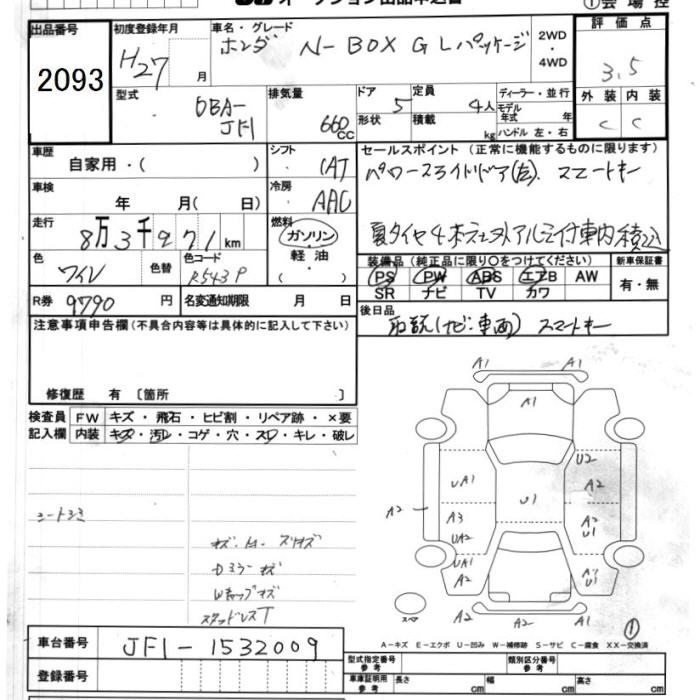 出品番号
2093
初度登録年月
H27 月
車名・グレード
ホンダ N-BOX G Lパッケージ
2WD
・
4WD
①会場控
評価点
3.5
型式
DBA-
JF1
排気量
660cc
ドア 5
形状
定員 4人
積載 kg
ディーラー・並行
モデル年式 年
ハンドル 左・右
外装 内装
C C
車歴
自家用・( )
シフト
CAT
セールスポイント(正常に機能するものに限ります)
パワースライドドア(左) スマートキー
夏タイヤ4本
アルミ付車内積込
車検
年 月( 日)
冷房
AAC
走行
8万3千971km
燃料
ガソリン
・
軽油
・
( )
色
ワイン
色替
色コード
R543P
装備品(純正品に限り○をつけてください)
PS PW ABS エアB AW
SR ナビ TV カワ
新車保証書
有・無
R券 9790 円
名変通知期限 月 日
後日品
取説(ナビ・車両) スマートキー
注意事項申告欄(不具合内容等は具体的に記入して下さい)
修復歴 有〔箇所 〕
検査員
記入欄
FW キズ・飛石・ヒビ割・リペア跡・×要
内装 キズ・汚レ・コゲ・穴・スレ・キレ・破レ
シートシミ
Dミラーキズ
Wキャップキズ
スタッドレスT
A1 A1
A1
U2
UA1 A2
U1
A2
A3 A2
U1
UA2
UA1
A2
U1
A2 A2
スペア
①
A-キズ E-エクボ U-凹み W-補修跡 S-サビ C-腐食 XX-交換済
車台番号
JF1-1532009
登録番号
型式指定番号
参考
類別区分番号
参考
車庫証明用
参考
長さ cm 幅 cm 高さ cm